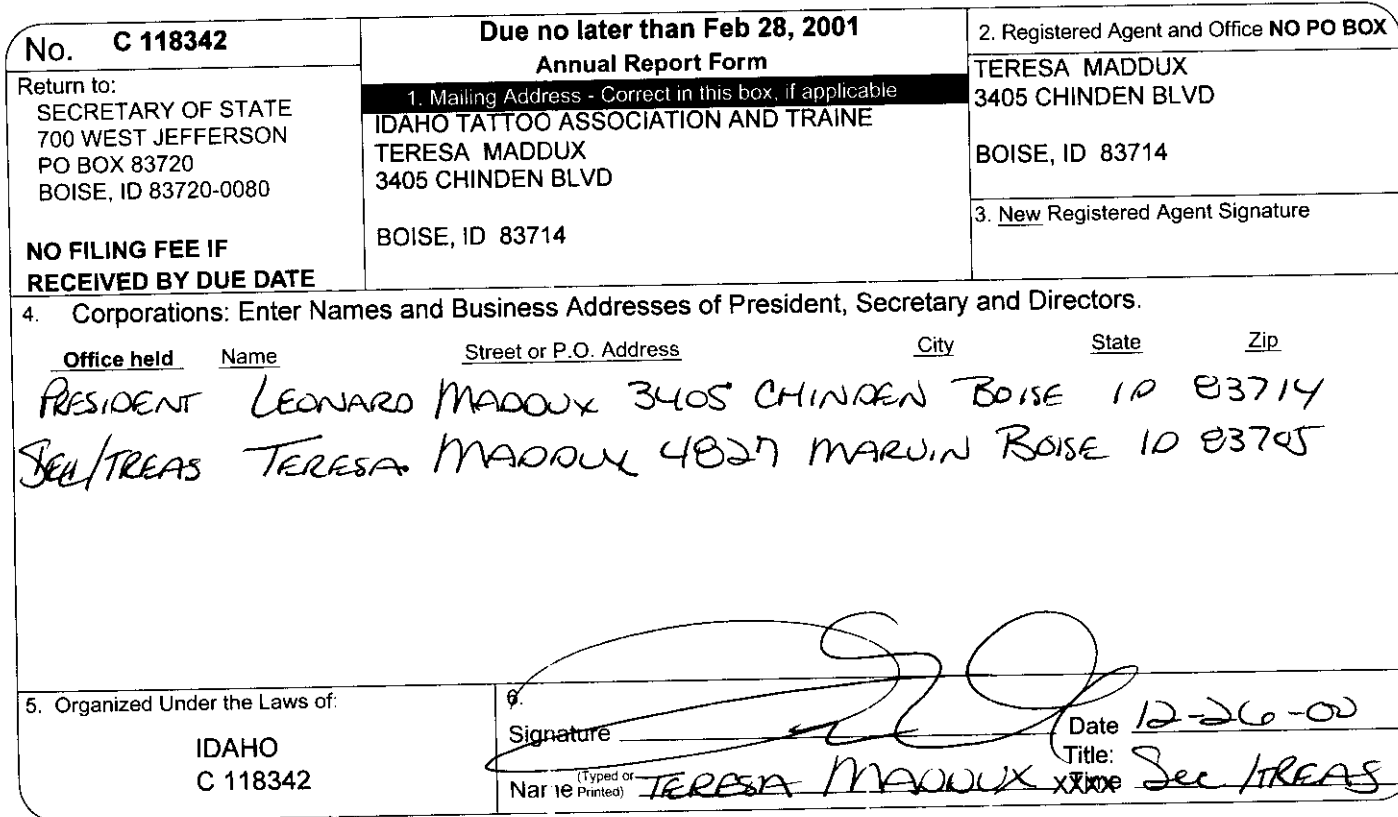 No. C 118342
Return to:
SECRETARY OF STATE
700 WEST JEFFERSON
PO BOX 83720
BOISE, ID 83720-0080
NO FILING FEE IF
RECEIVED BY DUE DATE
Due no later than Feb 28, 2001
Annual Report Form
1. Mailing Address - Correct in this box, if applicable
IDAHO TATTOO ASSOCIATION AND TRAINE
TERESA MADDUX
3405 CHINDEN BLVD
BOISE, ID 83714
2. Registered Agent and Office NO PO BOX
TERESA MADDUX
3405 CHINDEN BLVD
BOISE, ID 83714
3. New Registered Agent Signature
4. Corporations: Enter Names and Business Addresses of President, Secretary and Directors.
Office held Name Street or P.O. Address City State Zip
PRESIDENT LEONARD MADDUX 3405 CHINDEN BOISE ID 83714
SEC/TREAS TERESA MADDUX 4827 MARVIN BOISE ID 83705
5. Organized Under the Laws of:
IDAHO
C 118342
6.
Signature Date 12-26-00
Name (Typed or Printed) TERESA MADDUX Title: Sec/TREAS